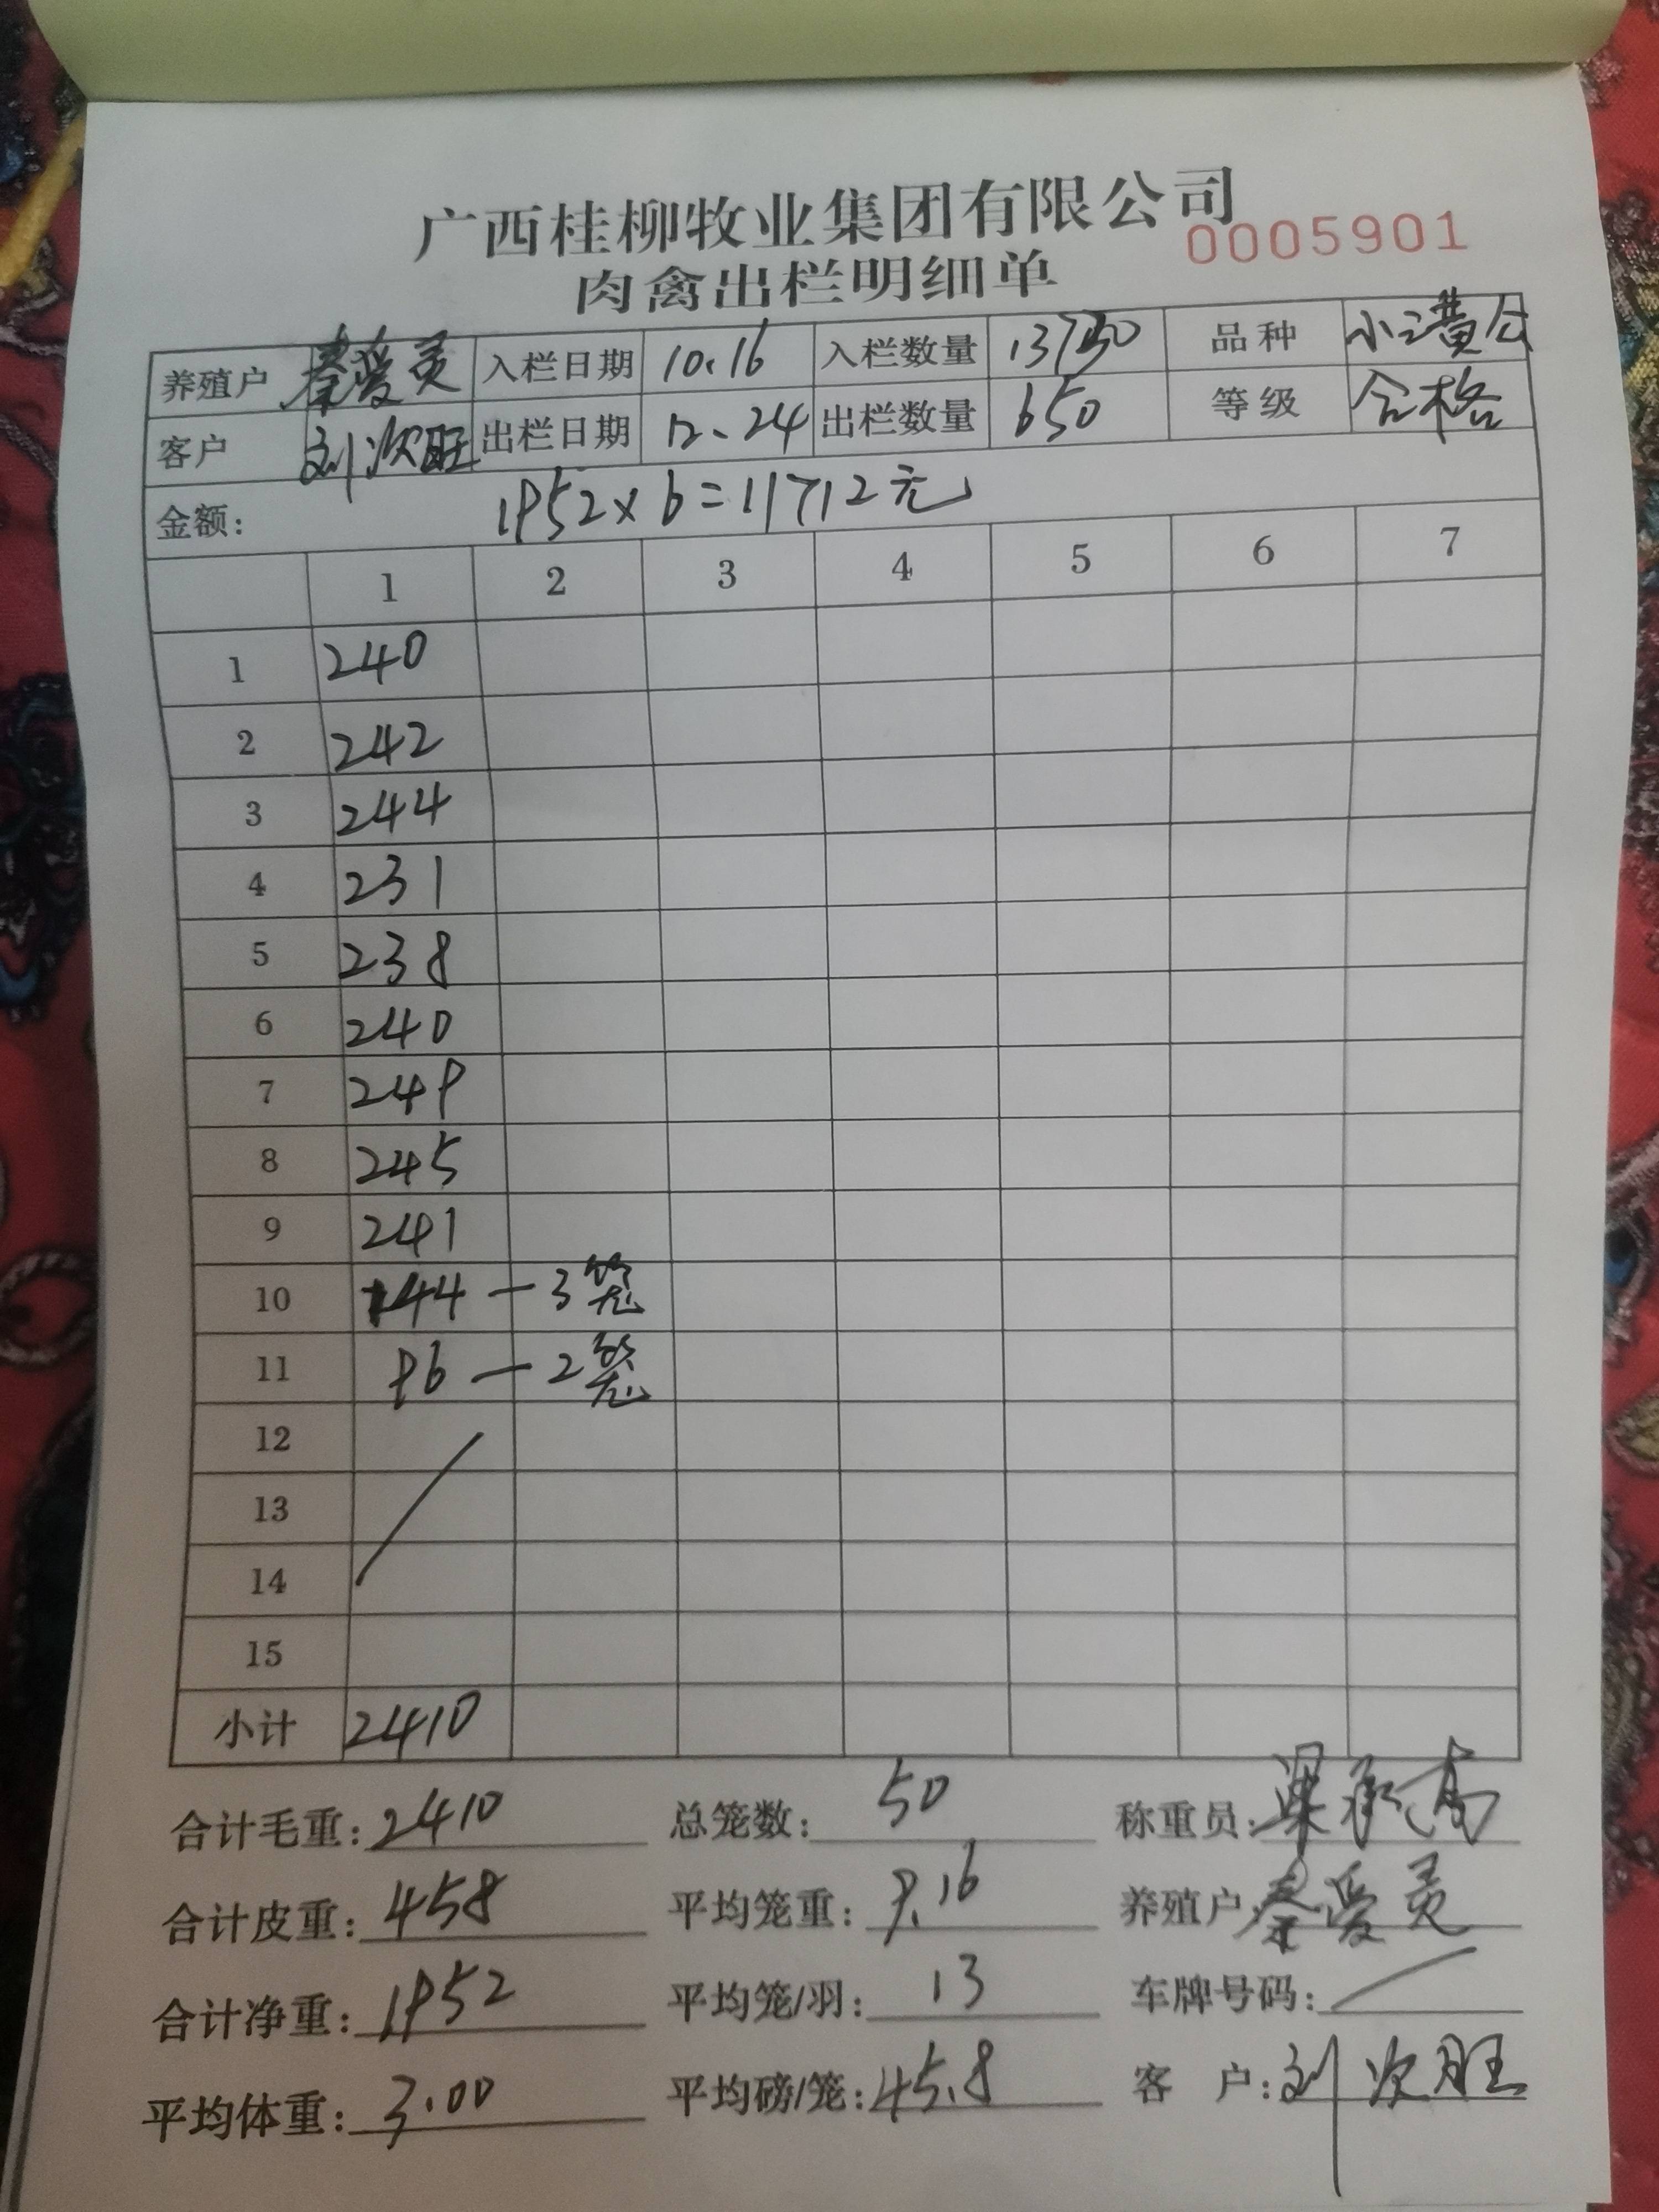 广西桂柳牧业集团有限公司
0005901
肉禽出栏明细单
养殖户 秦爱灵 入栏日期 10.16 入栏数量 13750 品种 小二黄公
客户 刘次旺 出栏日期 12.24 出栏数量 650 等级 合格
金额: 1952×6=11712元
1 2 3 4 5 6 7
1 240
2 242
3 244
4 231
5 238
6 240
7 249
8 245
9 241
10 144 — 3笼
11 96 — 2笼
12
13
14
15
小计 2410
合计毛重: 2410 总笼数: 50 称重员: 梁承高
合计皮重: 458 平均笼重: 9.16 养殖户 秦爱灵
合计净重: 1952 平均笼/羽: 13 车牌号码:
平均体重: 3.00 平均磅/笼: 45.8 客 户: 刘次旺